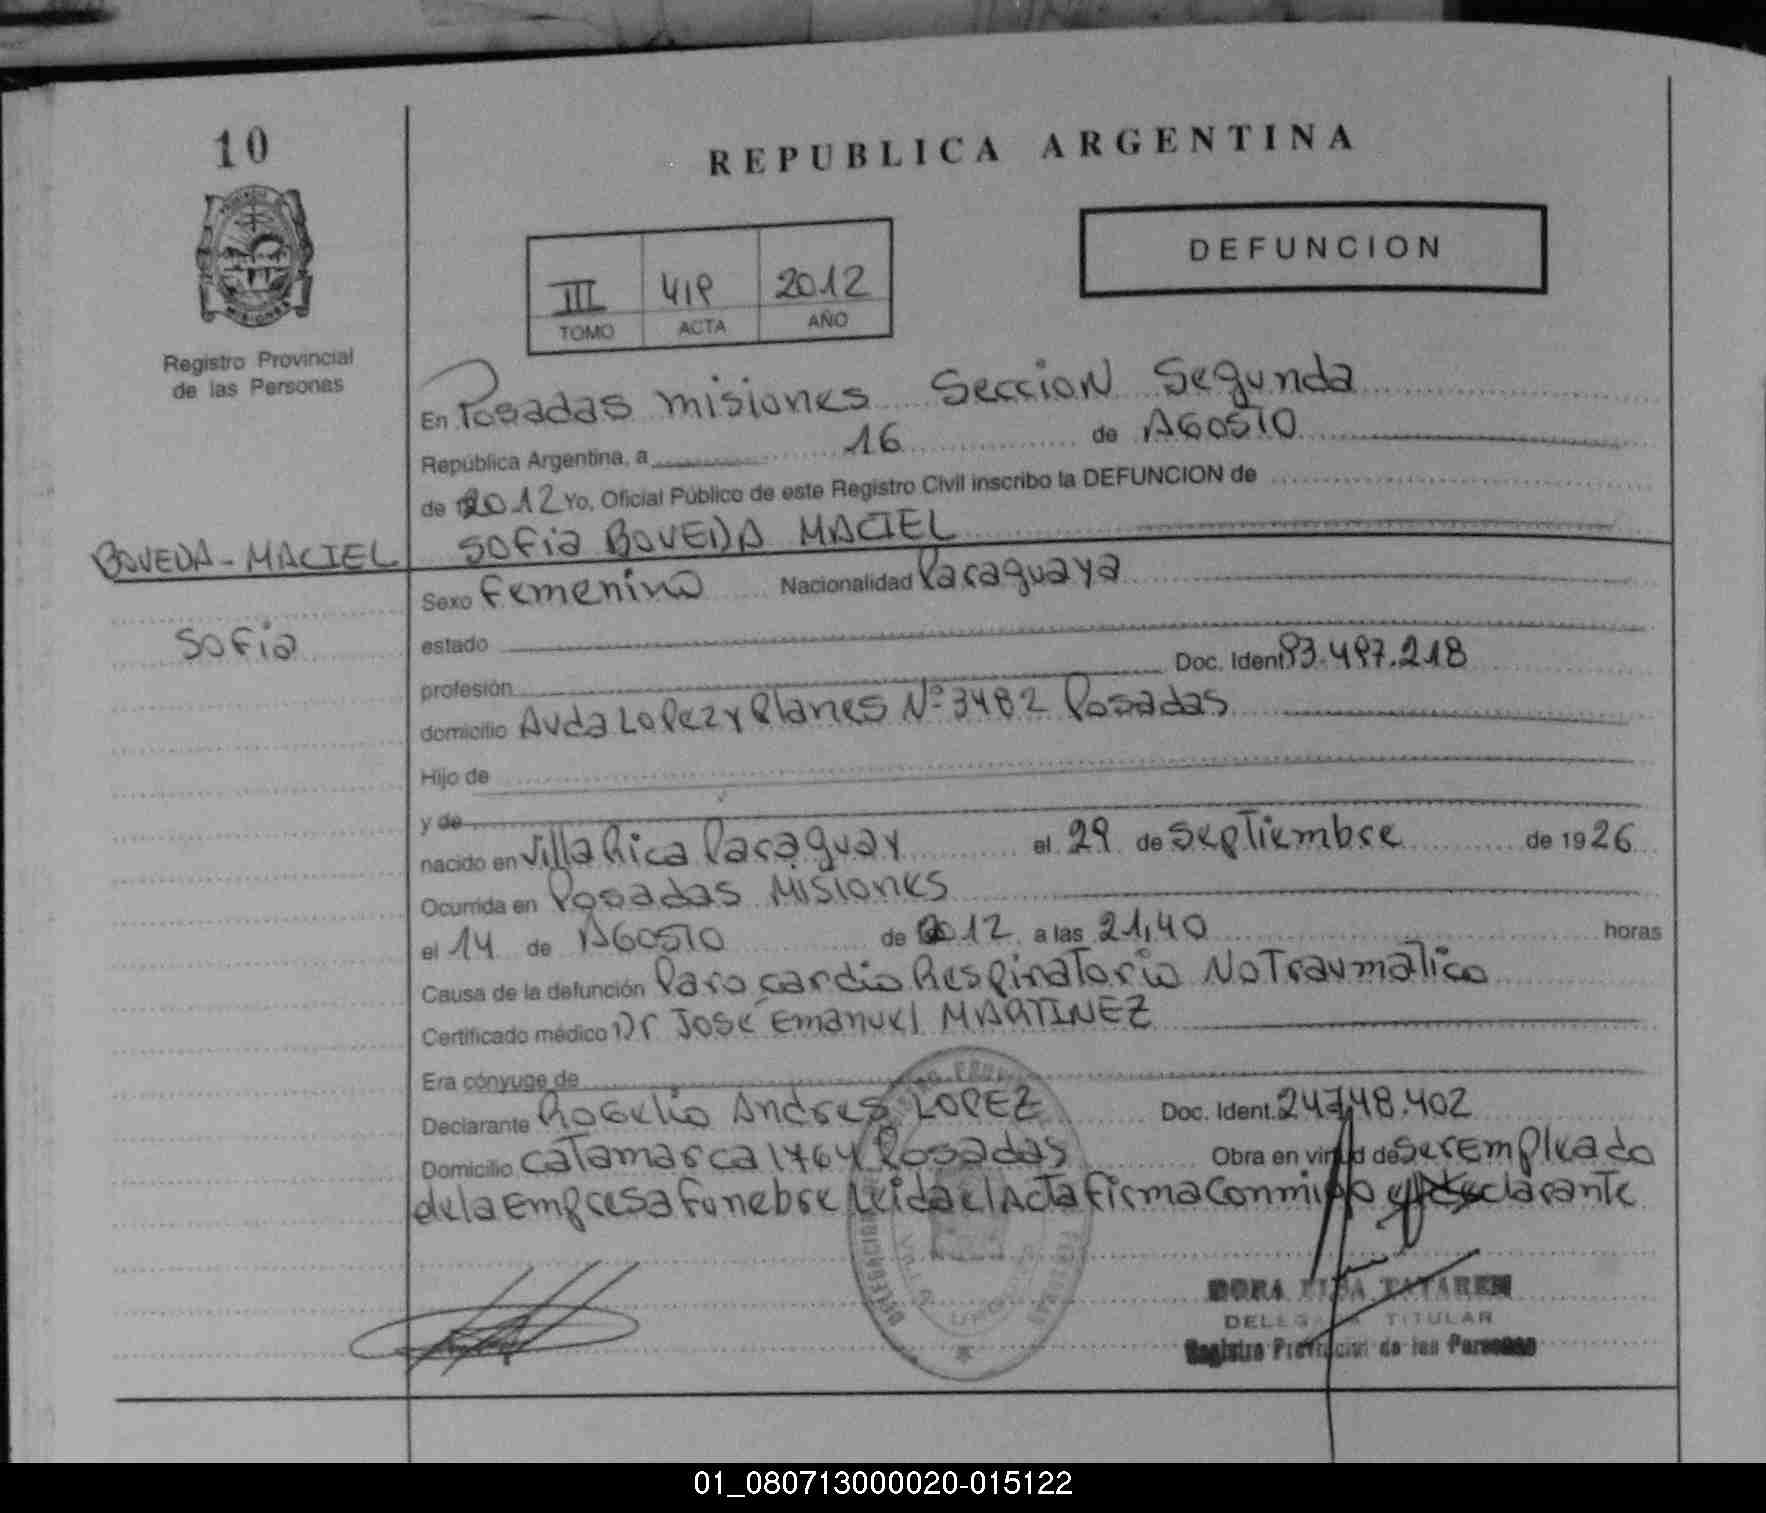 10
REPUBLICA ARGENTINA
DEFUNCION
III 419 2012
TOMO ACTA AÑO
Registro Provincial
de las Personas
En Posadas Misiones Seccion Segunda
República Argentina, a 16 de AGOSTO
de 2012 Yo, Oficial Público de este Registro Civil inscribo la DEFUNCION de
BOVEDA - MACIEL
Sofia BOVEDA MACIEL
Sofia
Sexo Femenino Nacionalidad Paraguaya
estado
profesión Doc. Ident 93.497.218
domicilio Avda Lopez y Planes Nº 3482 Posadas
Hijo de
y de
nacido en Villa Rica Paraguay el 29 de Septiembre de 1926
Ocurrida en Posadas Misiones
el 14 de AGOSTO de 2012 a las 21,40 horas
Causa de la defunción Paro cardio Respiratorio No Traumatico
Certificado médico Dr Jose Emanuel MARTINEZ
Era cónyuge de
Declarante Rogelio Andres LOPEZ Doc. Ident. 24.748.402
Domicilio catamarca 1464 Posadas Obra en virtud de Ser Empleado
de la Empresa Funebre Leida el Acta Firma Conmigo el declarante
DORA
TITULAR
Registro Provincial de las Personas
01_080713000020-015122